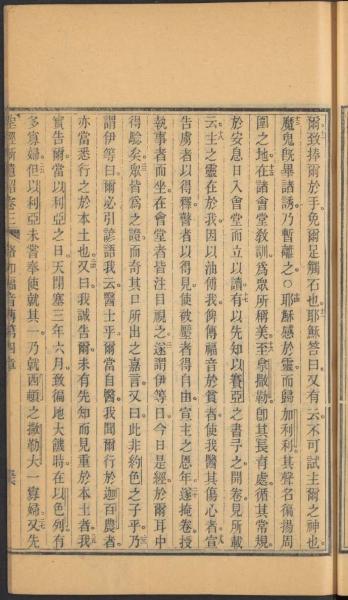 爾致捧爾於手免爾足觸石也耶穌答曰又有云不可試主爾之神也
魔鬼旣畢諸誘乃暫離之○耶穌感於靈而歸加利利其聲名徧揚周
圍之地在諸會堂敎訓爲眾所稱美至拿撒勒卽其長育處循其常規
於安息日入會堂而立以讀有以先知以賽亞之書子之開卷見所載
云主之靈在於我因以油傅我俾傳福音於貧者使我醫其傷心者宣
告虜者以得釋瞽者以得見使被壓者得自由宣主之恩年遂掩卷授
執事者而坐在會堂者皆注目視之遂謂伊等曰今日是經於爾耳中
得驗矣眾皆爲之證而奇其日所出之嘉言又曰此非約色之子乎乃
謂伊等曰爾必引諺語我云醫士乎爾當自醫我聞爾行於迦百農者
亦當悉行之於本土也又曰我誠告爾未有先知而見重於本土者我
實告爾當以利亞之日天閉塞三年六月致徧地大饑時在以色列有
多寡婦但以利亞未嘗奉使就其一乃就西頓之撒勒大一寡婦又先
聖經新遺詔卷三 路加福音傳第四章